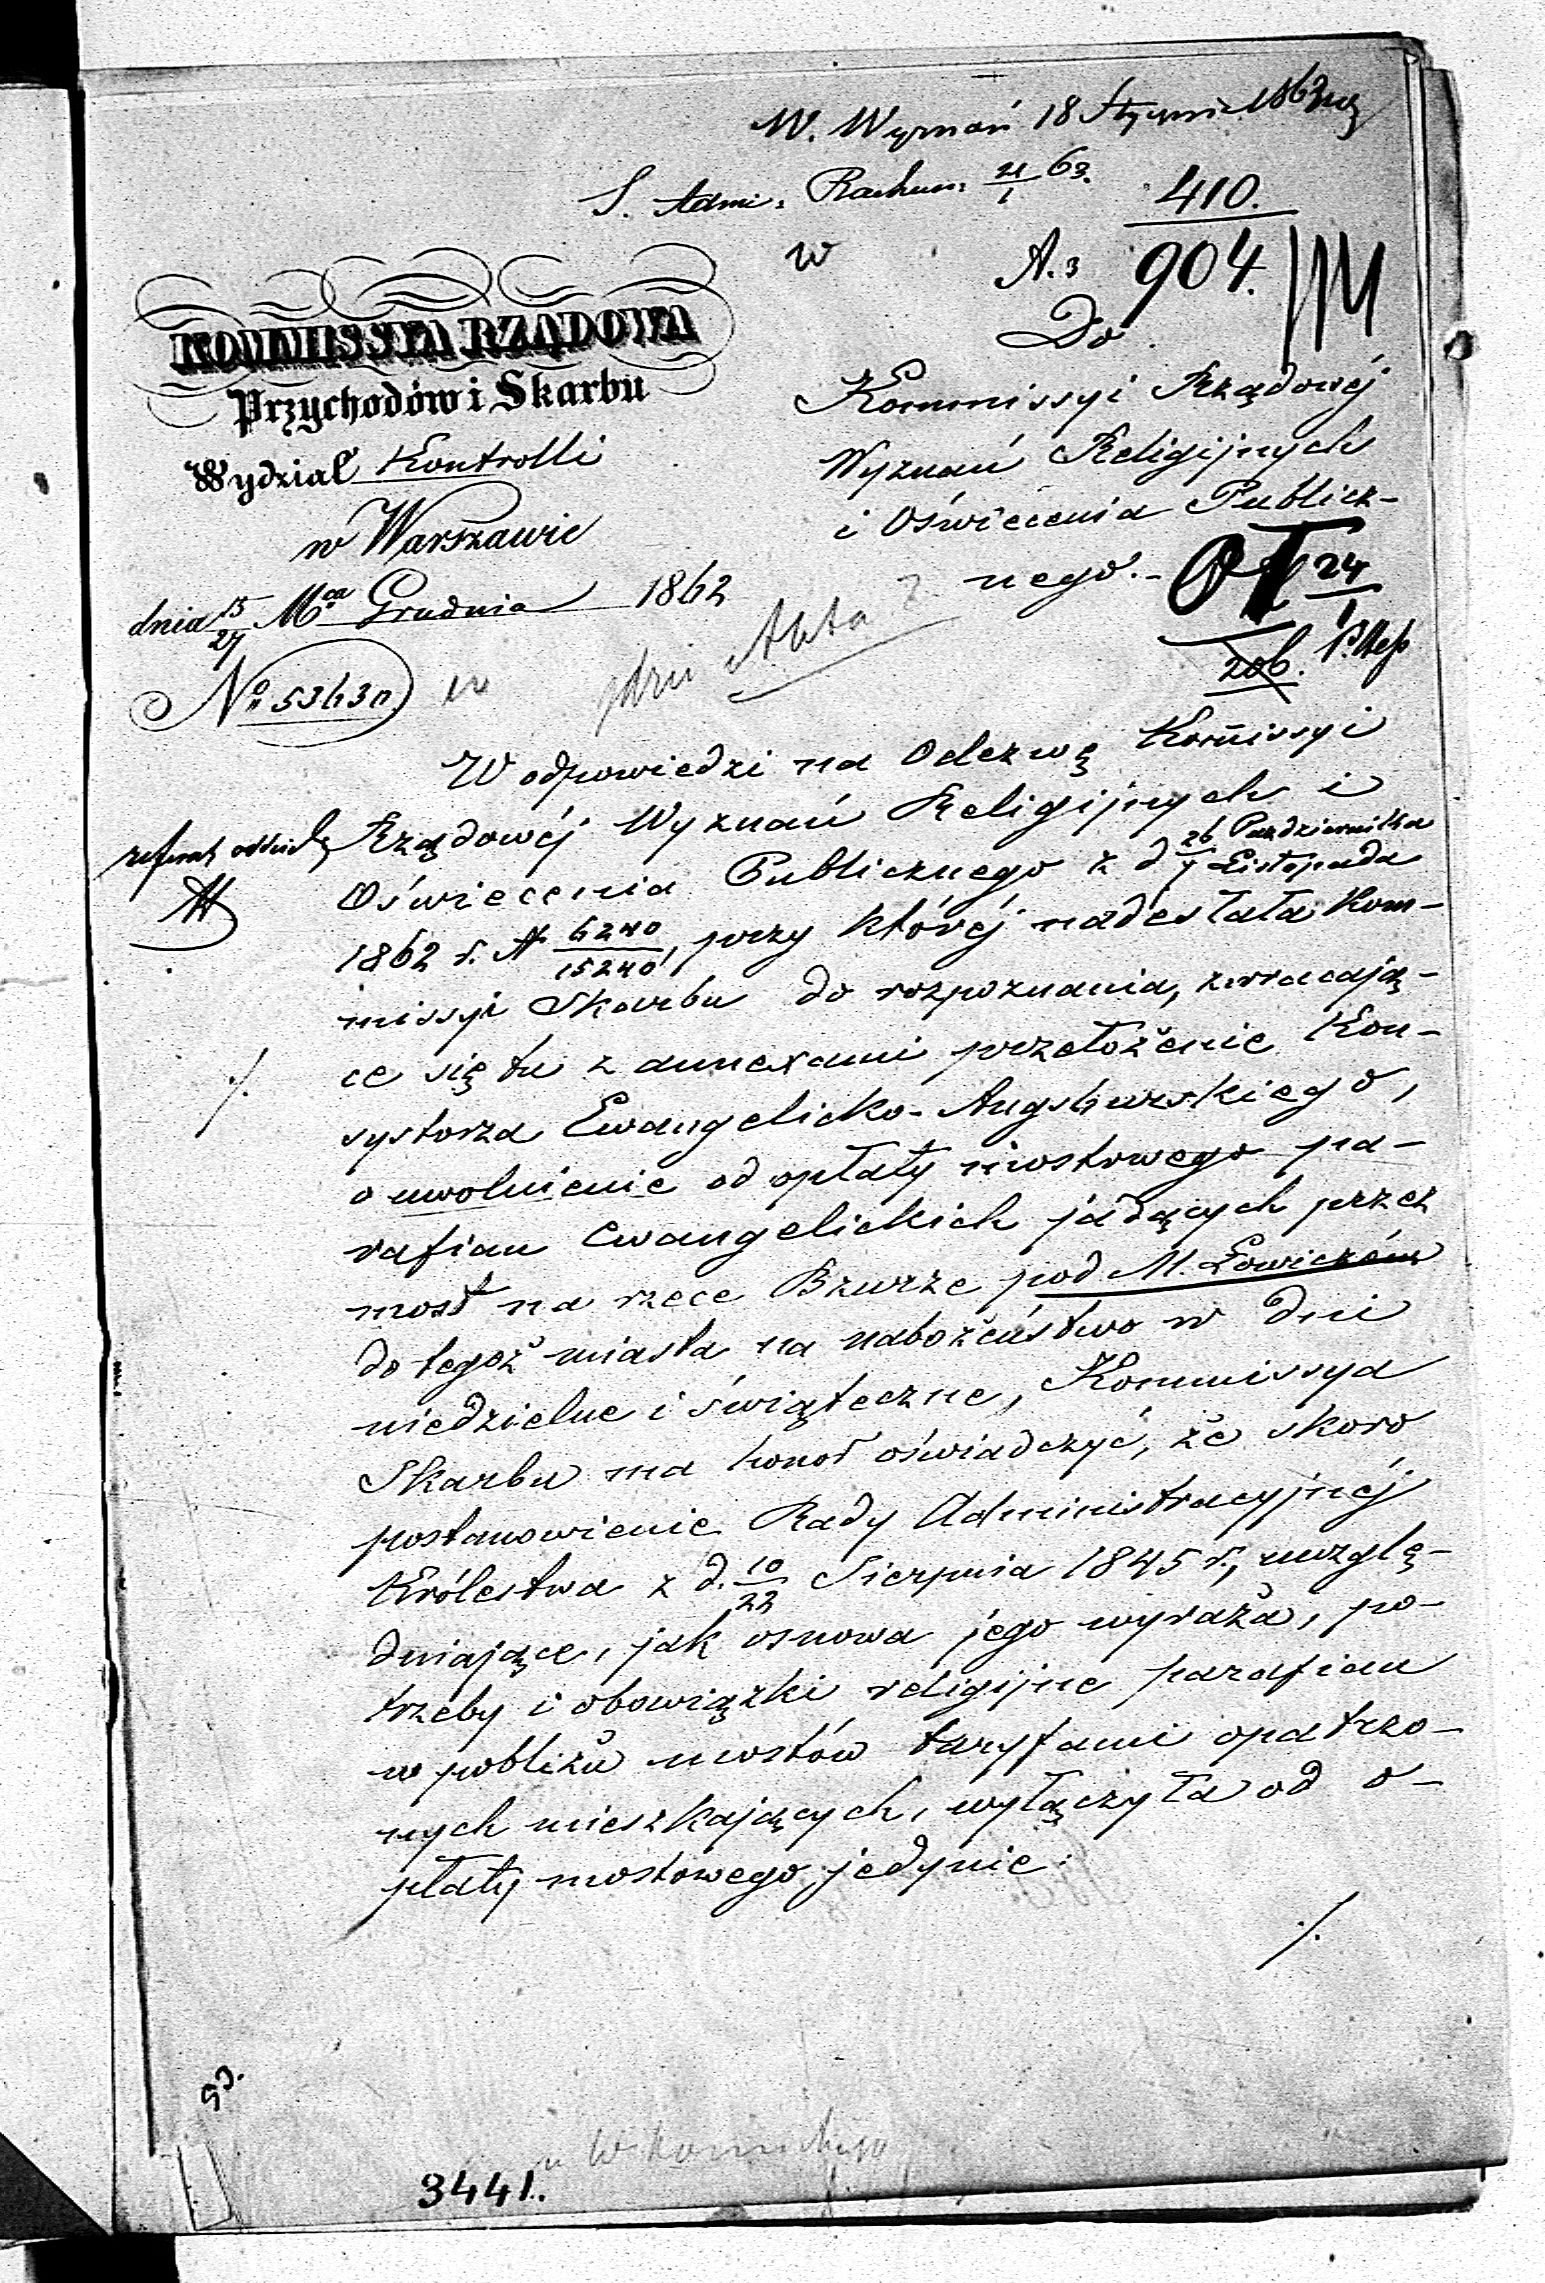 W. Wyznań 18 Stycznia 1863
S. Admi. Rachun. 21/1 63.
410.
W A. 3 904.
KOMMISSYA RZĄDOWA
Przychodów i Skarbu
Wydział Kontrolli
w Warszawie
dnia 15/27 Mca Grudnia 1862
No 53630
Do
Kommissyi Rządowéj
Wyznań Religijnych
i Oświecenia Publicz-
nego.-
24/1
206.
Akta
W odpowiedzi na Odezwę Kom̄issyi
Rządowéj Wyznań Religijnych i
Oświecenia Publicznego z d 26 Października/7 Listopada
1862 r. N 6240/15240, przy któréj nadesłała Kom-
missyi Skarbu do rozpoznania, zwracają-
ce się tu z annexami przełożenie Kon-
systorza Ewangelicko-Augsburskiego,
o uwolnienie od opłaty mostowego pa-
rafian ewangelickich jadących przez
most na rzece Bzurze pod M. Łowiczem
do tegoż miasta na nabożeństwo w dni
niedzielne i świąteczne, Kommissya
Skarbu ma honor oświadczyć, że skoro
postanowienie Rady Administracyjnéj
Królestwa z d. 10/22 Sierpnia 1845 r., uwzglę-
dniające, jak osnowa jego wyraża, po-
trzeby i obowiązki religijne parafian
w pobliżu mostów taryfami opatrzo-
nych mieszkających, wyłączyła od o-
płaty mostowego jedynie:
./.
3441.